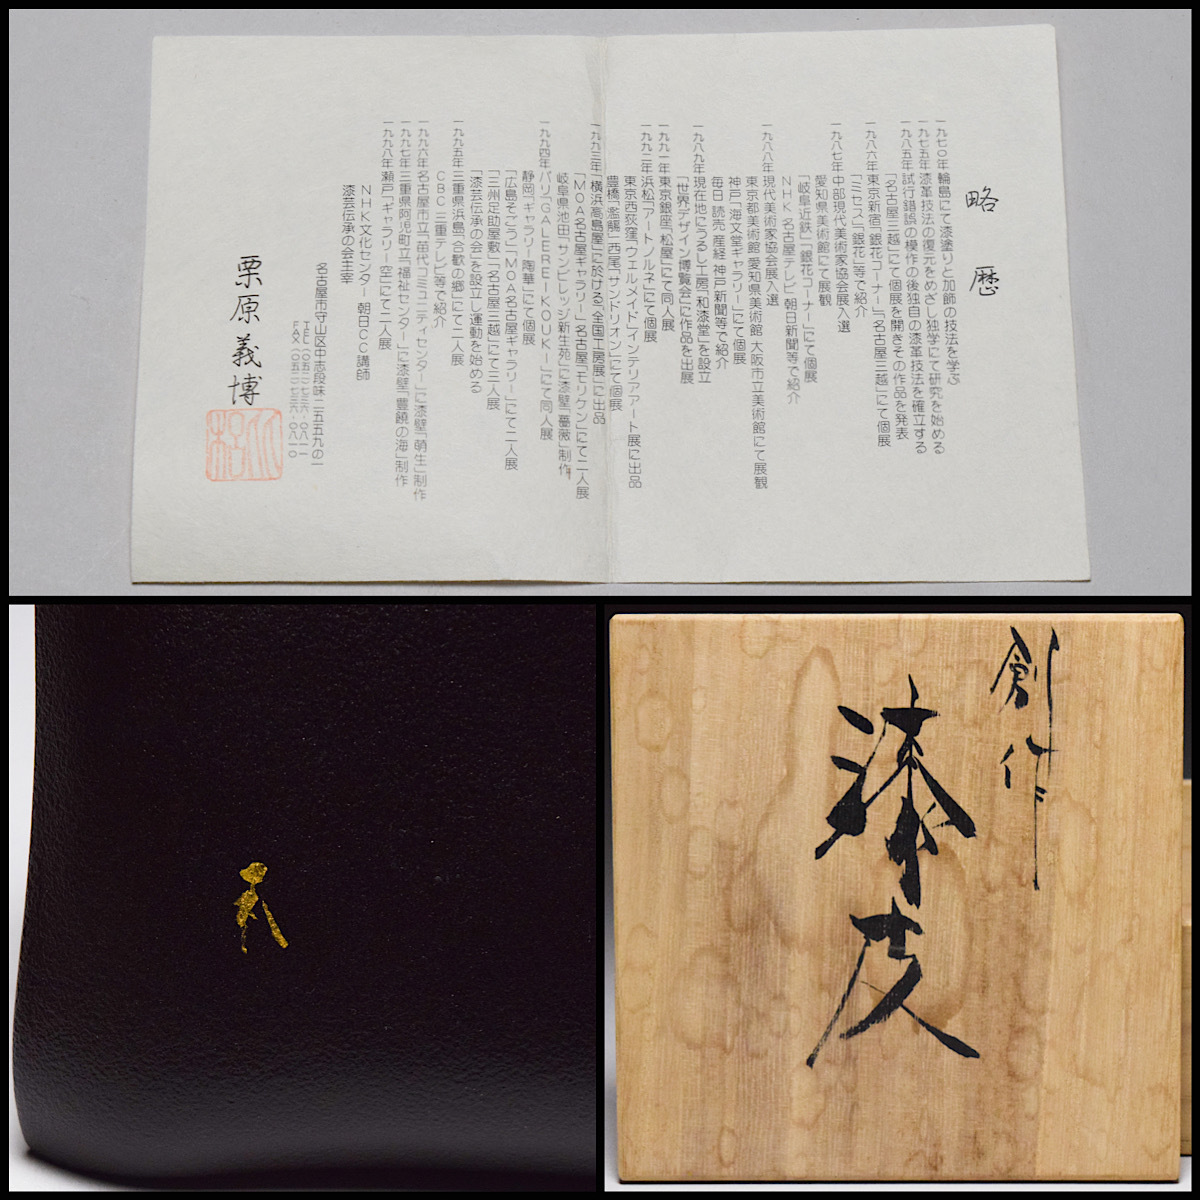 略歴
一九七〇年 輪島にて漆塗りと加飾の技法を学ぶ
一九七五年 漆革技法の復元をめざし独学にて研究を始める
一九八五年 試行錯誤の模作の後独自の漆革技法を確立する
「名古屋三越」にて個展を開きその作品を発表
一九八六年 東京新宿「銀花コーナー」「名古屋三越」にて個展
「ミセス」「銀花」等で紹介
一九八七年 中部現代美術家協会展入選
愛知県美術館にて展観
「岐阜近鉄」「銀花コーナー」にて個展
NHK 名古屋テレビ 朝日新聞等で紹介
一九八八年 現代美術家協会展入選
東京都美術館 愛知県美術館 大阪市立美術館にて展観
神戸「海文堂ギャラリー」にて個展
毎日 読売 産経 神戸新聞等で紹介
一九八九年 現在地にうるし工房「和漆堂」を設立
「世界デザイン博覧会」に作品を出展
一九九一年 東京銀座「松屋」にて同人展
一九九二年 浜松「アートノルネ」にて個展
東京西荻窪「ウェルメイド」インテリアアート展に出品
豊橋「濫觴」西尾「サントリオン」にて個展
一九九三年「横浜高島屋」に於ける「全国工房展」に出品
「MOA名古屋ギャラリー」名古屋「モリケン」にて二人展
岐阜県池田「サンビレッジ新生苑」に漆壁「薔薇」制作
一九九四年 パリ「GALEREI・KOUKI」にて同人展
静岡「ギャラリー陶華」にて個展
「広島そごう」「MOA名古屋ギャラリー」にて二人展
「三州足助屋敷」「名古屋三越」にて三人展
「漆芸伝承の会」を設立し運動を始める
一九九五年 三重県浜島「合歓の郷」にて二人展
CBC 三重テレビ等で紹介
一九九六年 名古屋市立「苗代コミュニティセンター」に漆壁「萌生」制作
一九九七年 三重県阿児町立「福祉センター」に漆壁「豊饒の海」制作
一九九八年 瀬戸「ギャラリー空」にて二人展
NHK文化センター 朝日CC講師
漆芸伝承の会主宰
名古屋市守山区中志段味二五五九の一
TEL(〇五二)七三六-〇八一一
FAX(〇五二)七三六-〇八一〇
栗原義博
創作
漆皮